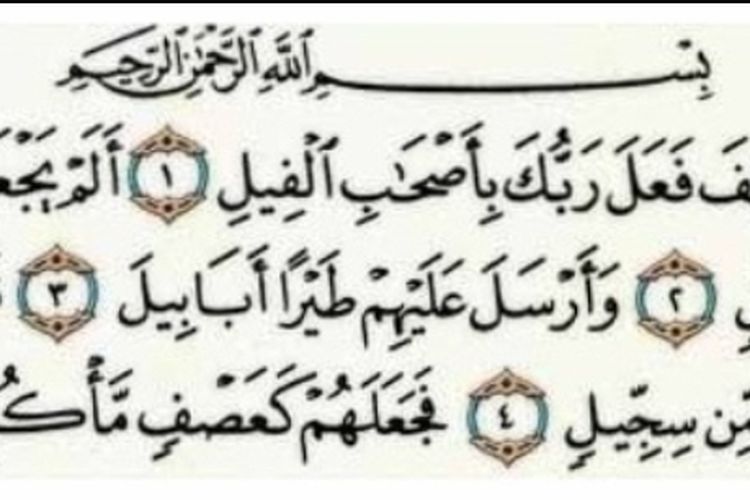 بِسْمِ ٱللَّهِ ٱلرَّحْمَٰنِ ٱلرَّحِيمِ
فَعَلَ رَبُّكَ بِأَصْحَٰبِ ٱلْفِيلِ ١ أَلَمْ
٢ وَأَرْسَلَ عَلَيْهِمْ طَيْرًا أَبَابِيلَ ٣
مِّن سِجِّيلٍ ٤ فَجَعَلَهُمْ كَعَصْفٍ